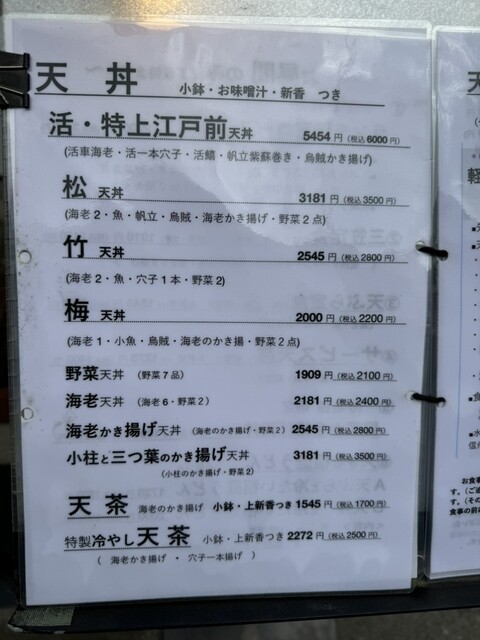 天丼 小鉢・お味噌汁・新香 つき
活・特上江戸前天丼 5454円(税込6000円)
(活車海老・活一本穴子・活鱚・帆立紫蘇巻き・烏賊かき揚げ)
松 天丼 3181円(税込3500円)
(海老2・魚・帆立・烏賊・海老かき揚げ・野菜2点)
竹 天丼 2545円(税込2800円)
(海老2・魚・穴子1本・野菜2)
梅 天丼 2000円(税込2200円)
(海老1・小魚・烏賊・海老のかき揚・野菜2点)
野菜天丼 (野菜7品) 1909円(税込2100円)
海老天丼 (海老6・野菜2) 2181円(税込2400円)
海老かき揚げ天丼 (海老のかき揚げ・野菜2) 2545円(税込2800円)
小柱と三つ葉のかき揚げ天丼 3181円(税込3500円)
(小柱のかき揚げ・野菜2)
天茶 海老のかき揚げ 小鉢・上新香つき 1545円(税込1700円)
特製冷やし天茶 小鉢・上新香つき 2272円(税込2500円)
(海老かき揚げ・穴子一本揚げ)